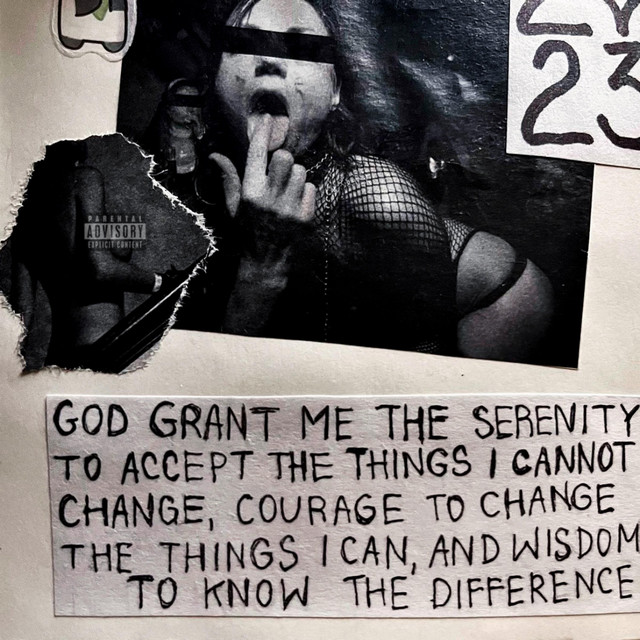 23
PARENTAL
ADVISORY
EXPLICIT CONTENT
GOD GRANT ME THE SERENITY
TO ACCEPT THE THINGS I CANNOT
CHANGE, COURAGE TO CHANGE
THE THINGS I CAN, AND WISDOM
TO KNOW THE DIFFERENCE